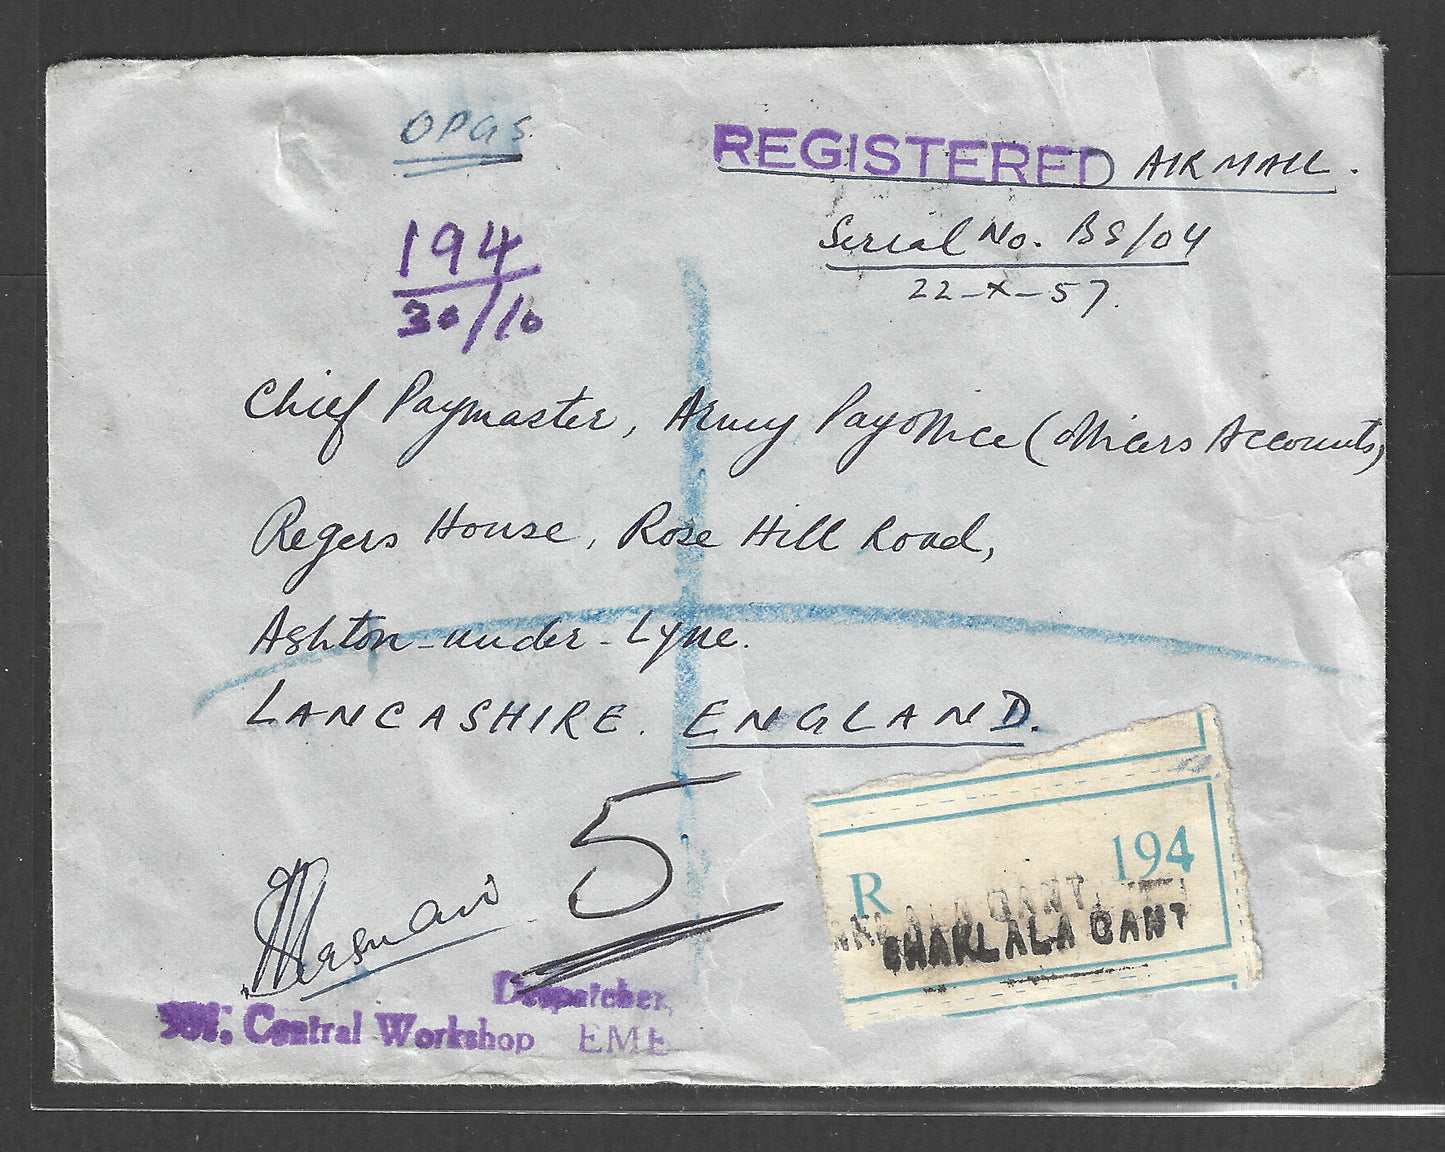 OPAS
REGISTERED AIR MAIL.
Serial No. BS/04
22-X-57.
194
30/10
Chief Paymaster, Army Pay Office (Officers Accounts,
Regers House, Rose Hill Road,
Ashton-under-Lyne.
LANCASHIRE. ENGLAND.
5
R 194
CHAKLALA CANT
CHAKLALA CANT
Despatcher,
Central Workshop EME